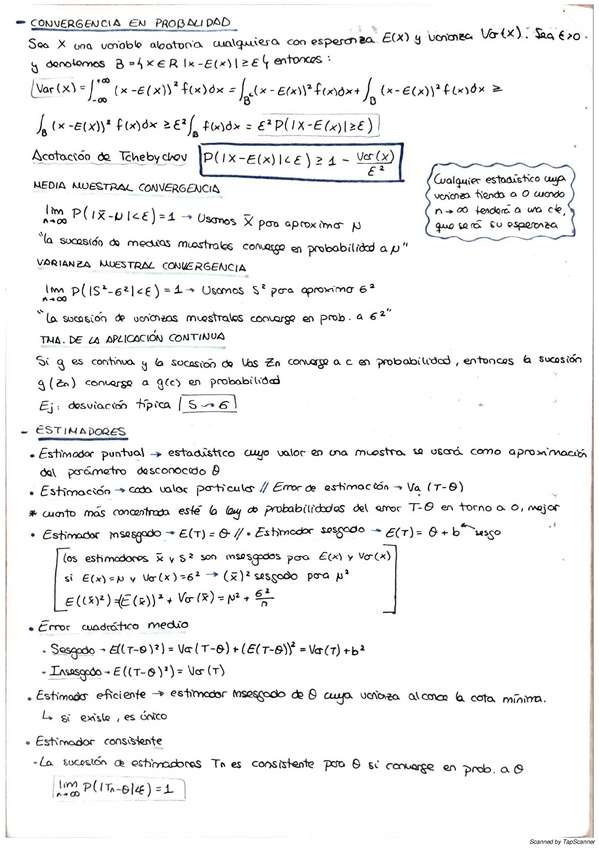 - CONVERGENCIA EN PROBALIDAD
Sea X una variable aleatoria cualquiera con esperanza E(X) y varianza Var(X). Sea ε>0.
y denotemos B = { x ∈ R |x - E(X)| ≥ ε } entonces:
Var(X) = ∫_{-∞}^{+∞} (x - E(X))² f(x)dx = ∫_{B^c} (x - E(X))² f(x)dx + ∫_B (x - E(X))² f(x)dx ≥
∫_B (x - E(X))² f(x)dx ≥ ε² ∫_B f(x)dx = ε² P(|X - E(X)| ≥ ε)
Acotación de Tchebychov P(|X - E(X)| < ε) ≥ 1 - Var(X)/ε²
Cualquier estadístico cuya
varianza tienda a 0 cuando
n→∞ tenderá a una cte,
que será su esperanza
MEDIA MUESTRAL CONVERGENCIA
lim n→∞ P(|X̄ - μ| < ε) = 1 → Usamos X̄ para aproximar μ
"la sucesión de medias muestrales converge en probabilidad a μ"
VARIANZA MUESTRAL CONVERGENCIA
lim n→∞ P(|S² - σ²| < ε) = 1 → Usamos S² para aproximar σ²
"La sucesión de varianzas muestrales converge en prob. a σ²"
TMA. DE LA APLICACIÓN CONTINUA
Si g es continua y la sucesión de Vas Zn converge a c en probabilidad, entonces la sucesión
g(Zn) converge a g(c) en probabilidad
Ej: desviación típica S → σ
- ESTIMADORES
• Estimador puntual → estadístico cuyo valor en una muestra se usará como aproximación
del parámetro desconocido θ
• Estimación → cada valor particular // Error de estimación → Va (T-θ)
* cuanto más concentrada esté la ley de probabilidades del error T-θ en torno a 0, mejor
• Estimador insesgado → E(T) = θ // • Estimador sesgado → E(T) = θ + b ← sesgo
los estimadores x̄ y S² son insesgados para E(X) y Var(X)
si E(X) = μ y Var(X) = σ² → (x̄)² sesgado para μ²
E((x̄)²) = (E(x̄))² + Var(x̄) = μ² + σ²/n
• Error cuadrático medio
- Sesgado → E((T-θ)²) = Var(T-θ) + (E(T-θ))² = Var(T) + b²
- Insesgado → E((T-θ)²) = Var(T)
• Estimador eficiente → estimador insesgado de θ cuya varianza alcance la cota mínima.
↳ si existe, es único
• Estimador consistente
- La sucesión de estimadores Tn es consistente para θ si converge en prob. a θ
lim n→∞ P(|Tn - θ| < ε) = 1
Scanned by TapScanner